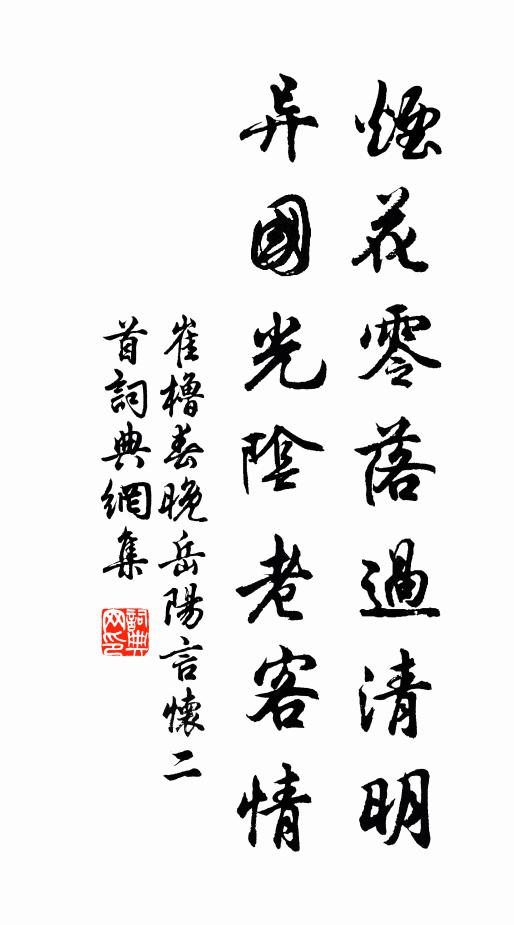 煙花零落過清明
异國光陰老客情
崔櫓春晚岳陽言懷二
首詞典網集
詞典
网印